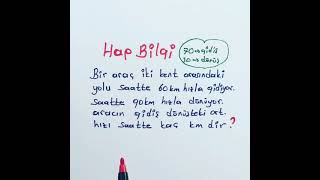 Hap Bilgi
70→gidiş
30→dönüş
Bir araç iki kent arasındaki
yolu saatte 60km hızla gidiyor.
saatte 90km hızla dönüyor.
aracın gidiş dönüşteki ort.
hızı saatte kaç km dir?